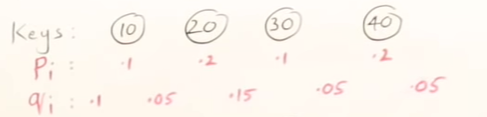 Keys: 10 20 30 40
Pi : .1 .2 .1 .2
qi : .1 .05 .15 .05 .05